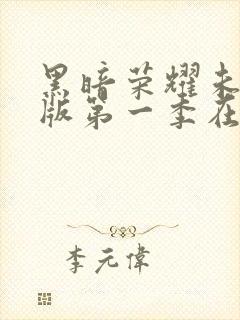 黑暗荣耀未
版第一季在
李元偉